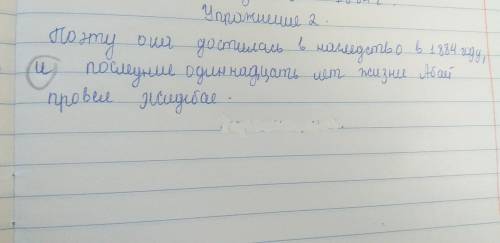 Упражнение 2.
Поэту она досталась в наследство в 1884 году,
и последние одиннадцать лет жизни Абай
провел Жидебае.